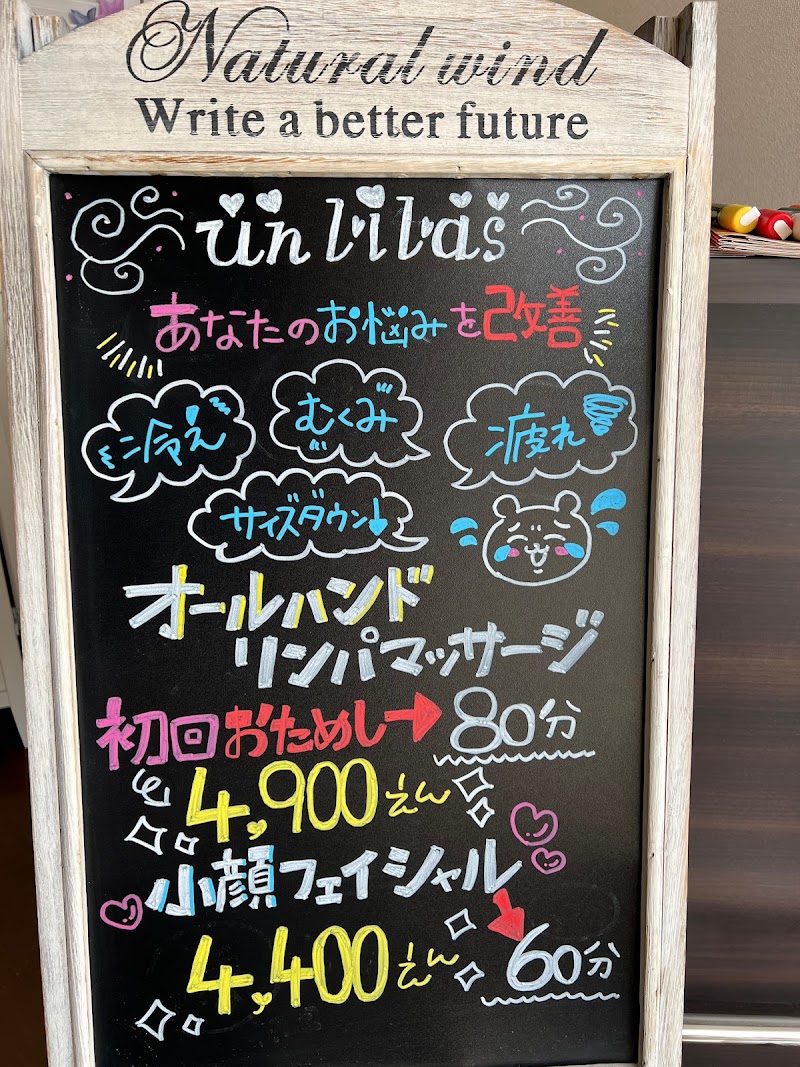 Natural wind
Write a better future
un lilas
あなたのお悩みを改善
冷え
むくみ
疲れ
サイズダウン↓
オールハンド
リンパマッサージ
初回おためし→80分
4,900えん
小顔フェイシャル
4,400えん 60分